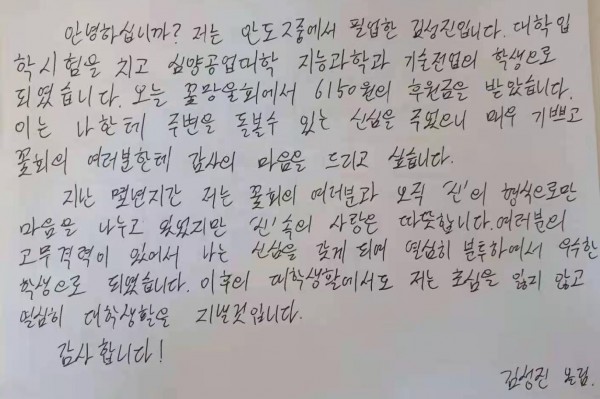 안녕하십니까? 저는 안도2중에서 필업한 김성진입니다. 대학입
학시험을 치고 심양공업대학 지능과학과 기술전업의 학생으로
되였습니다. 오늘 꽃망울회에서 6150원의 후원금을 받았습니다.
이는 나한테 주변을 돌볼수 있는 신심을 주었으니 매우 기쁘고
꽃회의 여러분한테 감사의 마음을 드리고 싶습니다.
지난 몇년지간 저는 꽃회의 여러분과 오직 '신'의 형식으로만
마음을 나누고 있었지만 '신'속의 사랑은 따뜻합니다. 여러분의
고무격력이 있어서 나는 신심을 갖게 되여 열심히 분투하여서 우수한
학생으로 되였습니다. 이후의 대학생활에서도 저는 초심을 잃지 않고
열심히 대학생활을 지낼것입니다.
감사합니다!
김성진 올림.